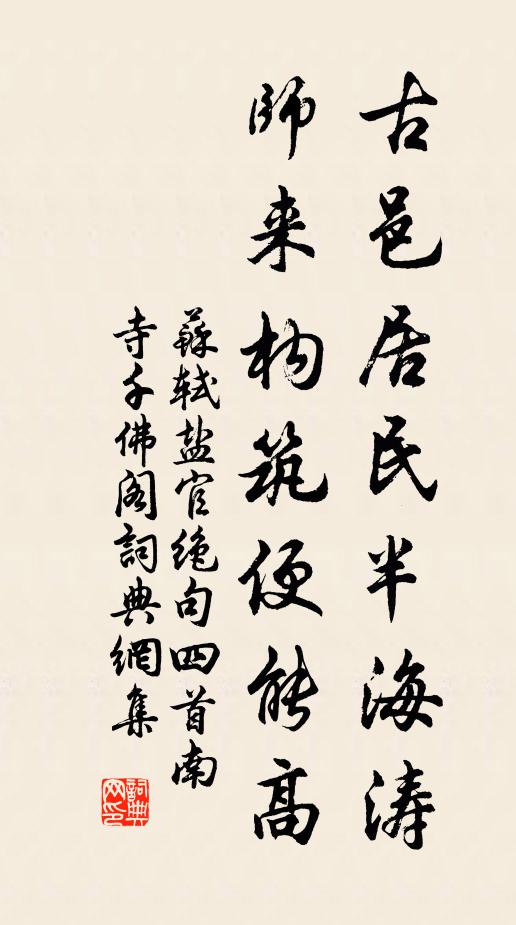 古邑居民半海涛
師来构筑便能高
蘇轼盐官绝句四首南
寺千佛阁詞典網集
詞典网印